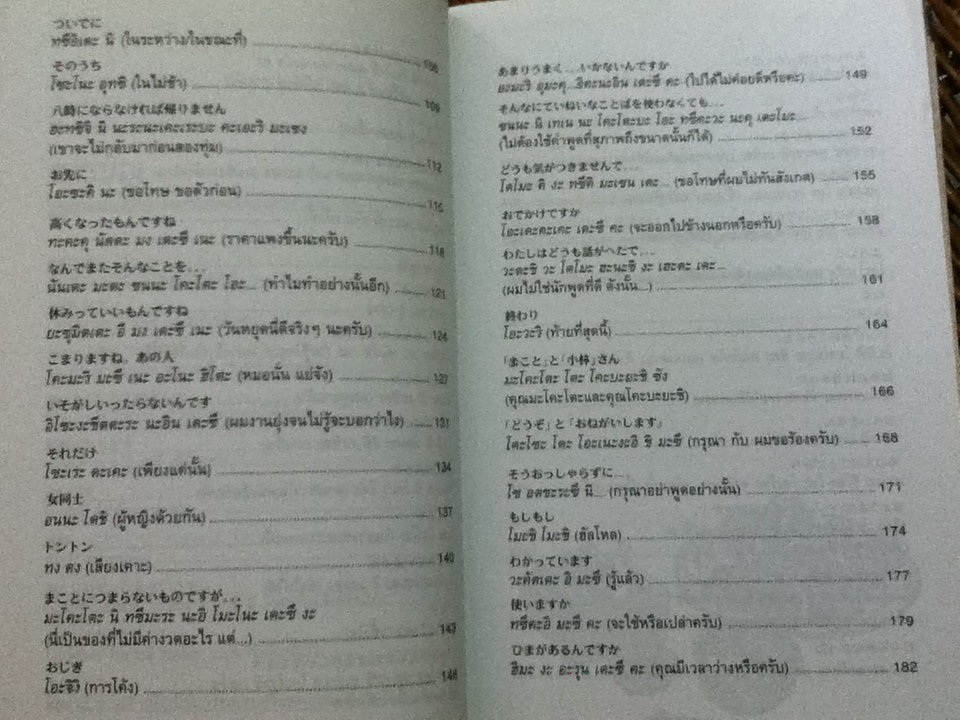 ついでに
ทซึอิเดะ นิ (ในระหว่าง/ในขณะที่) 106
そのうち
โซะโนะ อุทชิ (ในไม่ช้า) 109
八時にならなければ帰りません
ฮะทซิจิ นิ นะระนะเคะเระบะ คะเอะริ มะเซง
(เขาจะไม่กลับมาก่อนสองทุ่ม) 112
お先に
โอะซะคิ นะ (ขอโทษ ขอตัวก่อน) 115
高くなったもんですね
ทะคะคุ นัตตะ มง เดะซึ เนะ (ราคาแพงขึ้นนะครับ) 118
なんでまたそんなことを...
นันเดะ มะตะ ซนนะ โคะโตะ โอะ... (ทำไมทำอย่างนั้นอีก) 121
休みっていいもんですね
ยะซุมิตเตะ อี มง เดะซึ เนะ (วันหยุดนี่ดีจริงๆ นะครับ) 124
こまりますね、あの人
โคะมะริ มะซึ เนะ อะโนะ ฮิโตะ (หมอนั่น แย่จัง) 127
いそがしいったらないんです
อิโซะงะชีตตะระ นะอิน เดะซึ (ผมงานยุ่งจนไม่รู้จะบอกว่าไง) 131
それだけ
โซะเระ ดะเคะ (เพียงแค่นั้น) 134
女同士
อนนะ โดชิ (ผู้หญิงด้วยกัน) 137
トントン
ทง ตง (เสียงเคาะ) 140
まことにつまらないものですが...
มะโคะโตะ นิ ทซึมะระ นะอิ โมะโนะ เดะซึ งะ
(นี่เป็นของที่ไม่มีค่างวดอะไร แต่...) 143
おじぎ
โอะจิงิ (การโค้ง) 146
あまりうまく...いかないんですか
อะมะริ อุมะคุ...อิคะนะอิน เดะซึ คะ (ไปได้ไม่ค่อยดีหรือคะ) 149
そんなにていねいなことばを使わなくても...
ซนนะ นิ เทเน นะ โคะโตะบะ โอะ ทซึคะวะ นะคุ เตะโมะ...
(ไม่ต้องใช้คำพูดที่สุภาพถึงขนาดนั้นก็ได้) 152
どうも気がつきませんで...
โดโมะ คิ งะ ทซึคิ มะเซน เดะ... (ขอโทษที่ผมไม่ทันสังเกต) 155
おでかけですか
โอะเดะคะเคะ เดะซึ คะ (จะออกไปข้างนอกหรือครับ) 158
わたしはどうも話がへたで...
วะตะชิ วะ โดโมะ ฮะนะชิ งะ เฮะตะ เดะ...
(ผมไม่ใช่นักพูดที่ดี ดังนั้น...) 161
終わり
โอะวะริ (ท้ายที่สุดนี้) 164
「まこと」と「小林」さん
มะโคะโตะ โตะ โคะบะยะชิ ซัง
(คุณมะโคะโตะและคุณโคะบะยะชิ) 166
「どうぞ」と「おねがいします」
โดะโซะ โตะ โอะเนะงะอิ ชิ มะซึ (กรุณา กับ ผมขอร้องครับ) 168
そうおっしゃらずに...
โซ อตชะระซึ นิ... (กรุณาอย่าพูดอย่างนั้น) 171
もしもし
โมะชิ โมะชิ (ฮัลโหล) 174
わかっています
วะคัตเตะ อิ มะซึ (รู้แล้ว) 177
使いますか
ทซึคะอิ มะซึ คะ (จะใช้หรือเปล่าครับ) 179
ひまがあるんですか
ฮิมะ งะ อะรุน เดะซึ คะ (คุณมีเวลาว่างหรือครับ) 182